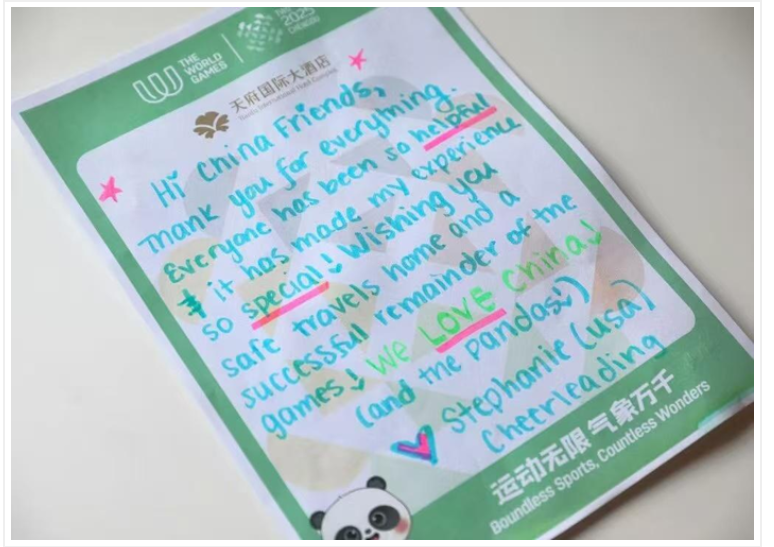 THE
WORLD
GAMES
2025
CHENGDU
天府国际大酒店
Hi China Friends,
Thank you for everything.
Everyone has been so helpful
& it has made my experience
so special! Wishing you
safe travels home and a
successful remainder of the
games! We LOVE China!
(and the pandas!)
Stephanie (USA)
Cheerleading
运动无限 气象万千
Boundless Sports, Countless Wonders